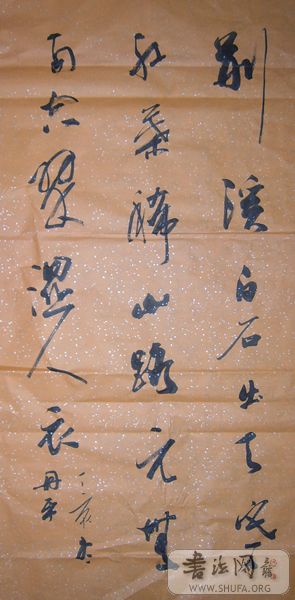 荆溪白石出天寒
红葉稀山路元無
雨空翠濕人衣
丁亥冬
書法网
WWW.SHUFA.ORG